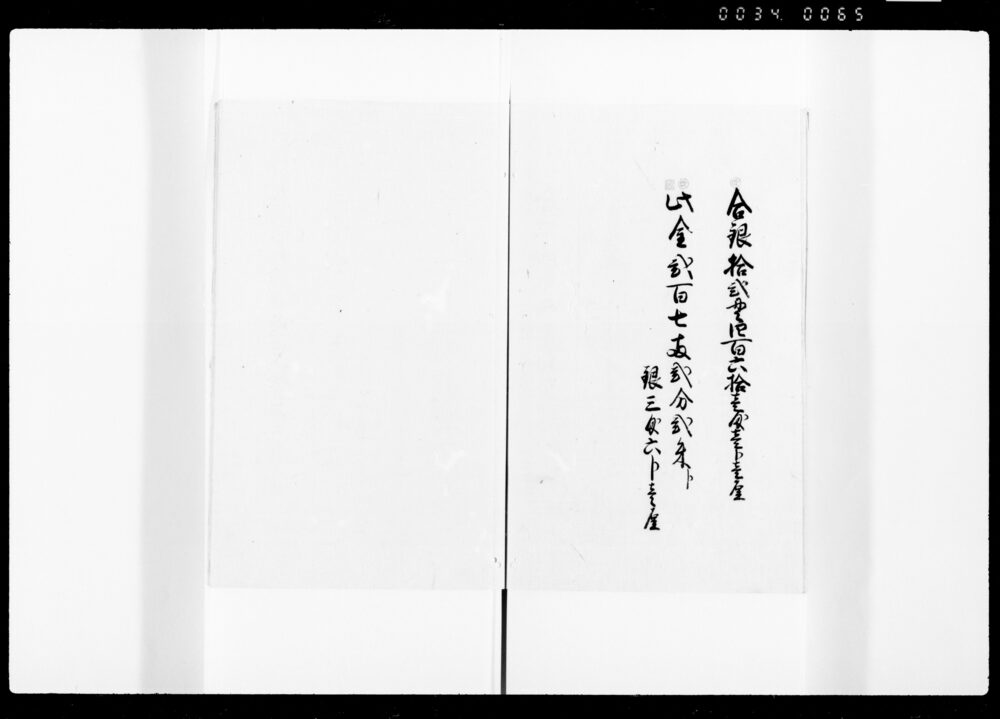 0034 0065
合銀拾弐貫四百六拾壱匁壱分壱厘
此金弐百七両弐分弐朱ト
銀三匁六分壱厘